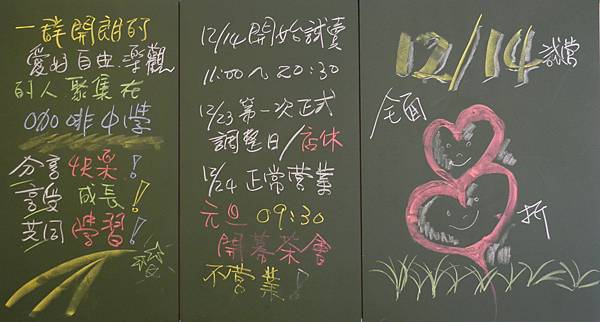 一群開朗的
愛好自由.樂觀
的人聚集在
咖啡中學
分享快樂!
享受成長!
共同學習!
12/14開始試賣
11:00~20:30
12/23第一次正式
調整日/店休
12/24正常營業
元旦 09:30
開幕茶會
不營業!
12/14試營
全面
8折